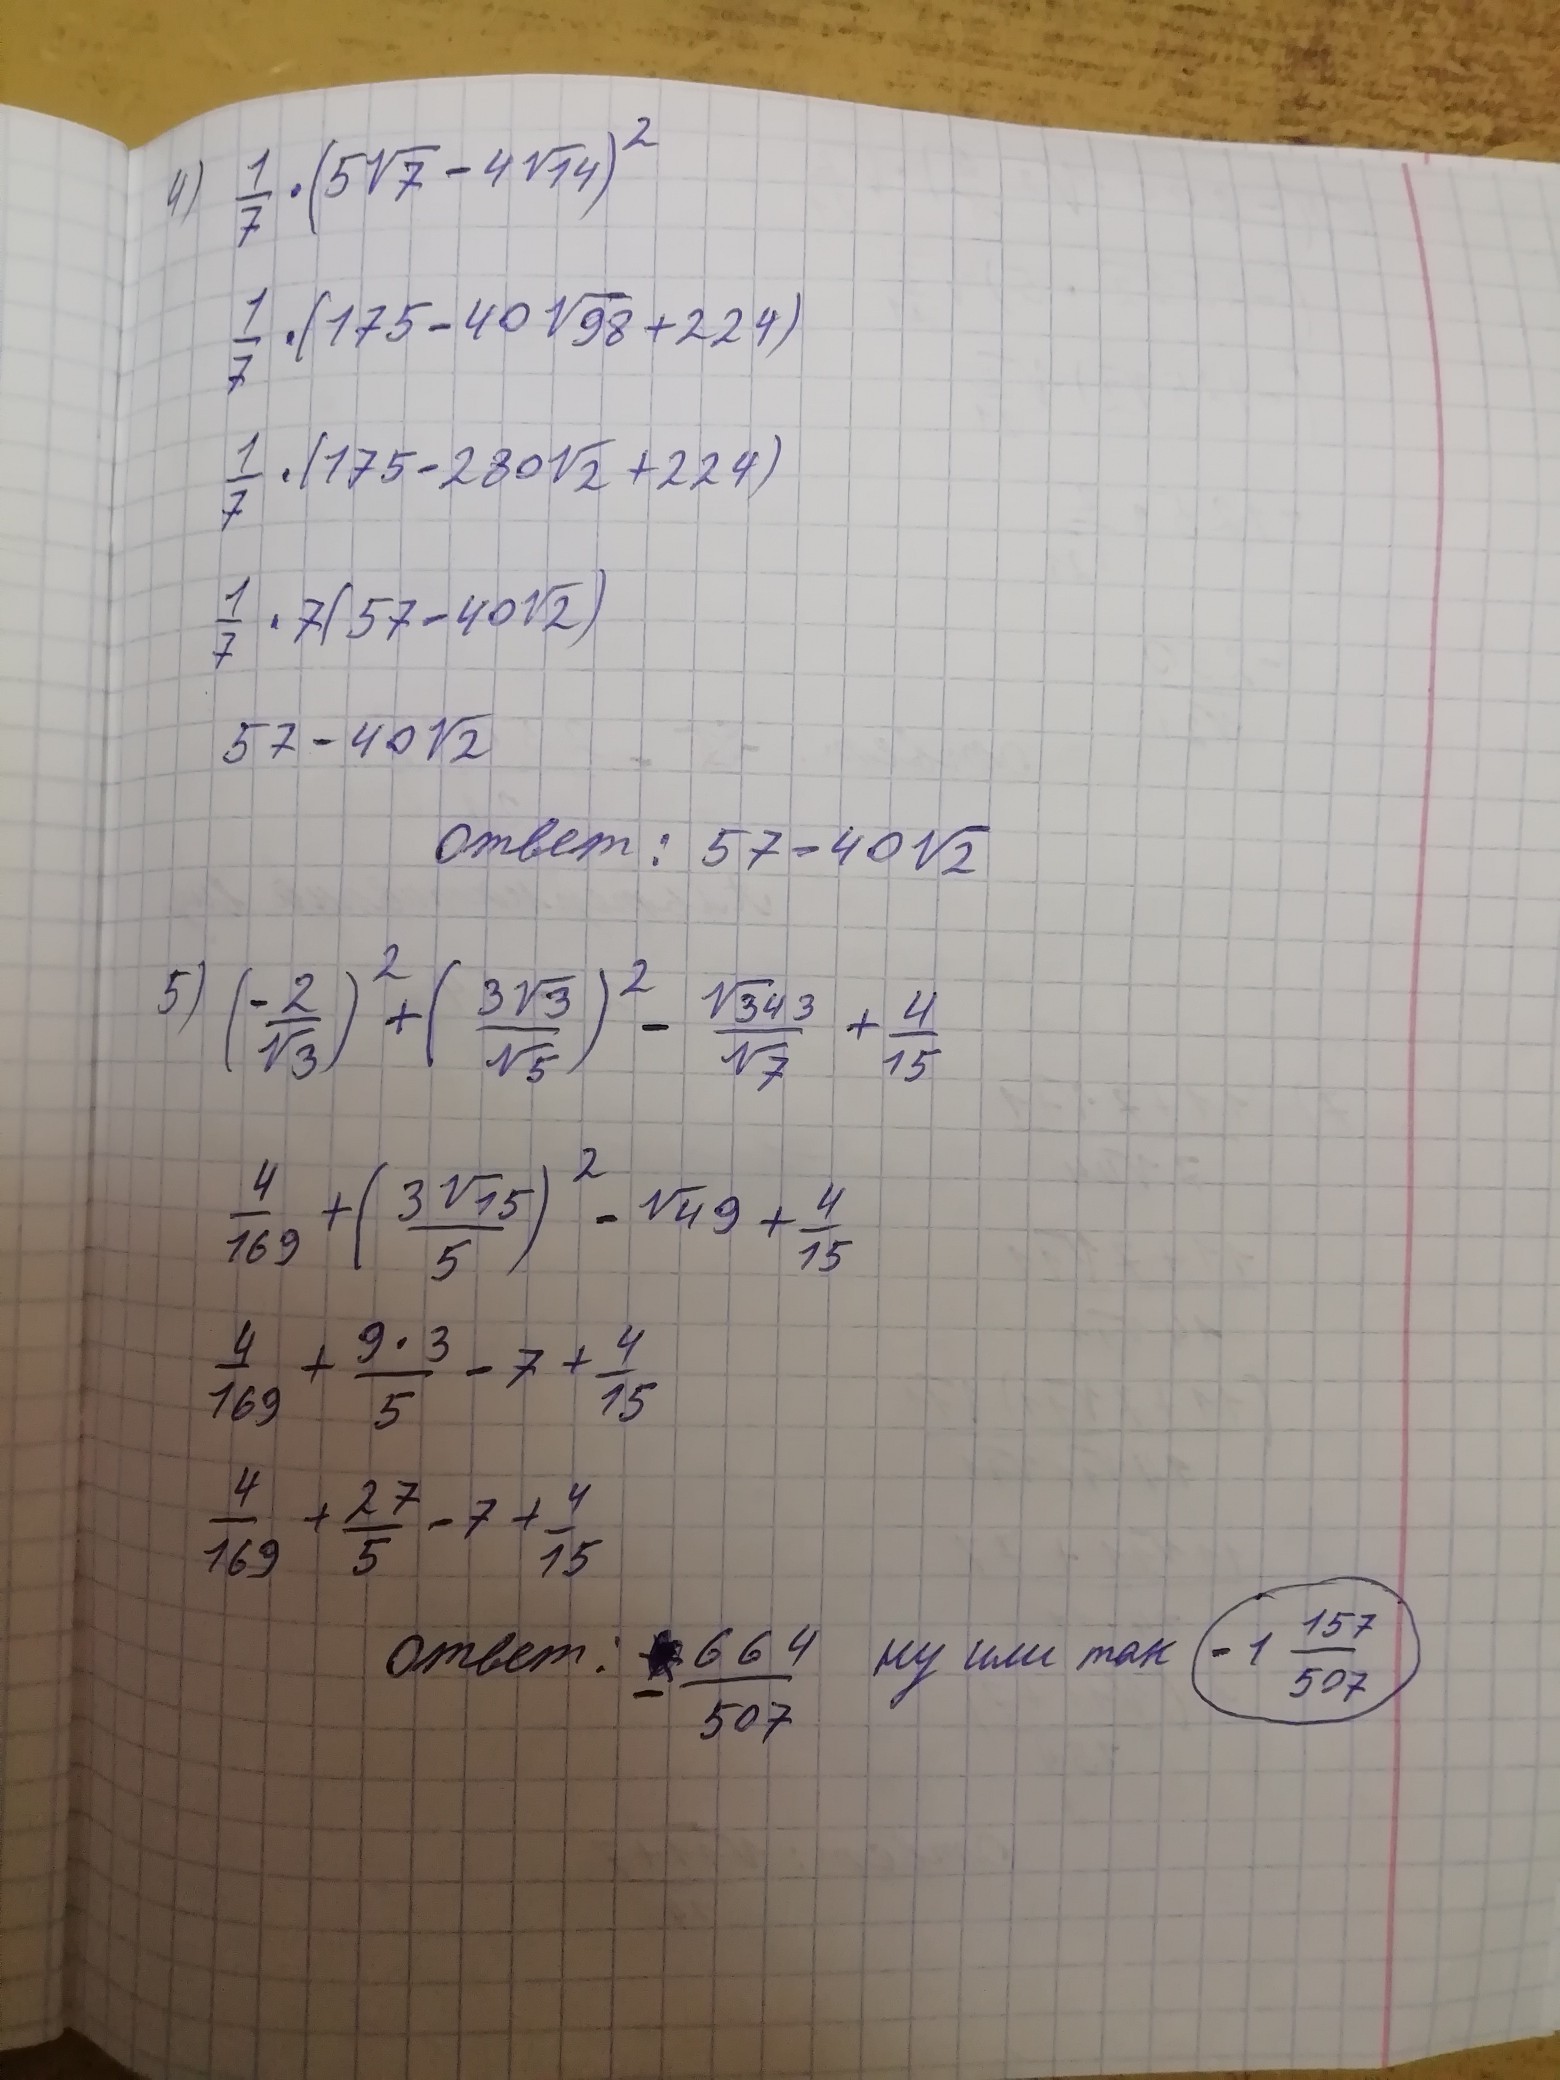 4) 1/7 · (5√7 - 4√14)²
1/7 · (175 - 40√98 + 224)
1/7 · (175 - 280√2 + 224)
1/7 · 7(57 - 40√2)
57 - 40√2
ответ: 57 - 40√2
5) (-2/√3)² + (3√3/√5)² - √343/√7 + 4/15
4/169 + (3√15/5)² - √49 + 4/15
4/169 + 9·3/5 - 7 + 4/15
4/169 + 27/5 - 7 + 4/15
ответ: - 664/507 ну или так -1 157/507